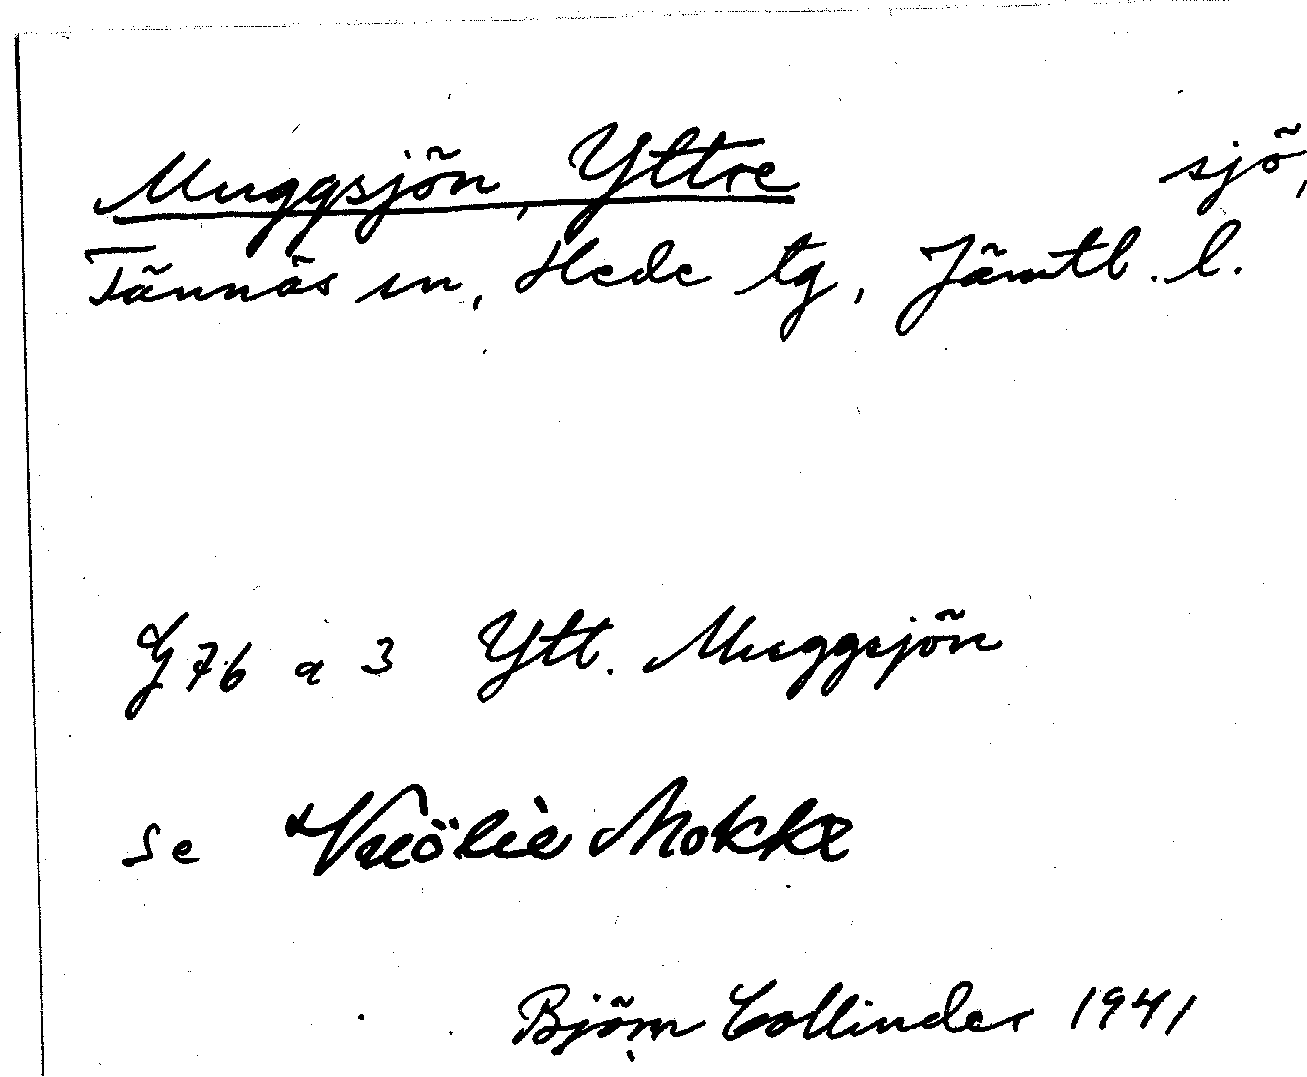 Muggsjön, Yttre sjö,
Tännäs sn, Hede tg, Jämtl. l.
G 76 a 3 Ytt. Muggsjön
Se Vuölie Mokke
Björn Collinder 1941